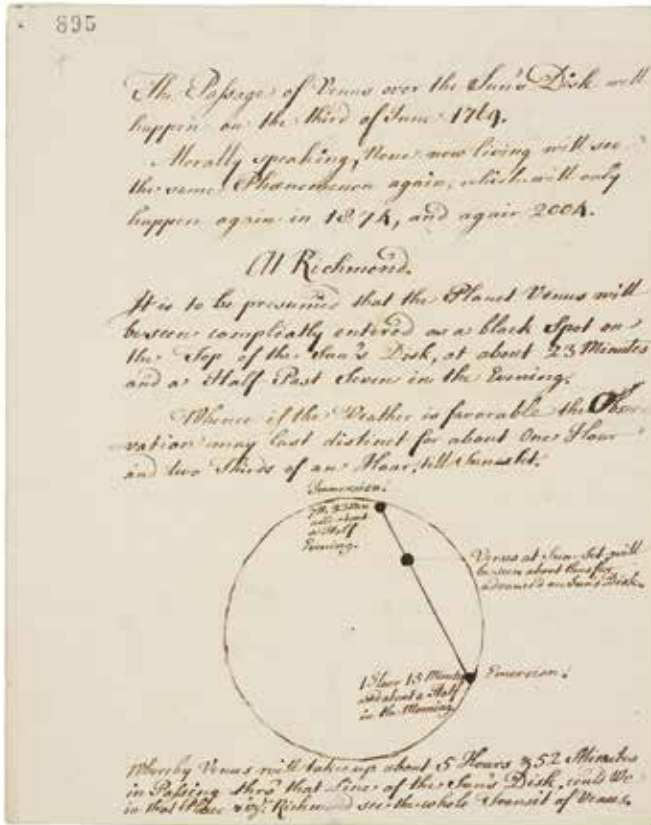 895
The Passage of Venus over the Sun's Disk will
happen on the third of June 1769.
Morally speaking, None now living will see
the same Phœnomenon again, which will only
happen again in 1874, and again 2004.
At Richmond.
It is to be presumed that the Planet Venus will
be seen compleatly entered as a black Spot on
the Top of the Sun's Disk, at about 23 Minutes
and a Half Past Seven in the Evening.
Whence if the Weather is favorable the Obser-
vation may last distinct for about One Hour
and two Thirds of an Hour, till Sun set.
Immersion.
and about
a Half
Evening.
Venus at Sun-Set, will
be seen about thus far
advanced on Sun's Disk.
1 Hour 15 Minutes
and about a Half
in the Morning
Emersion.
Whereby Venus will take up about 5 Hours & 52 Minutes
in Passing thro' that Line of the Sun's Disk, could We
in that Place Richmond see the whole Transit of Venus.